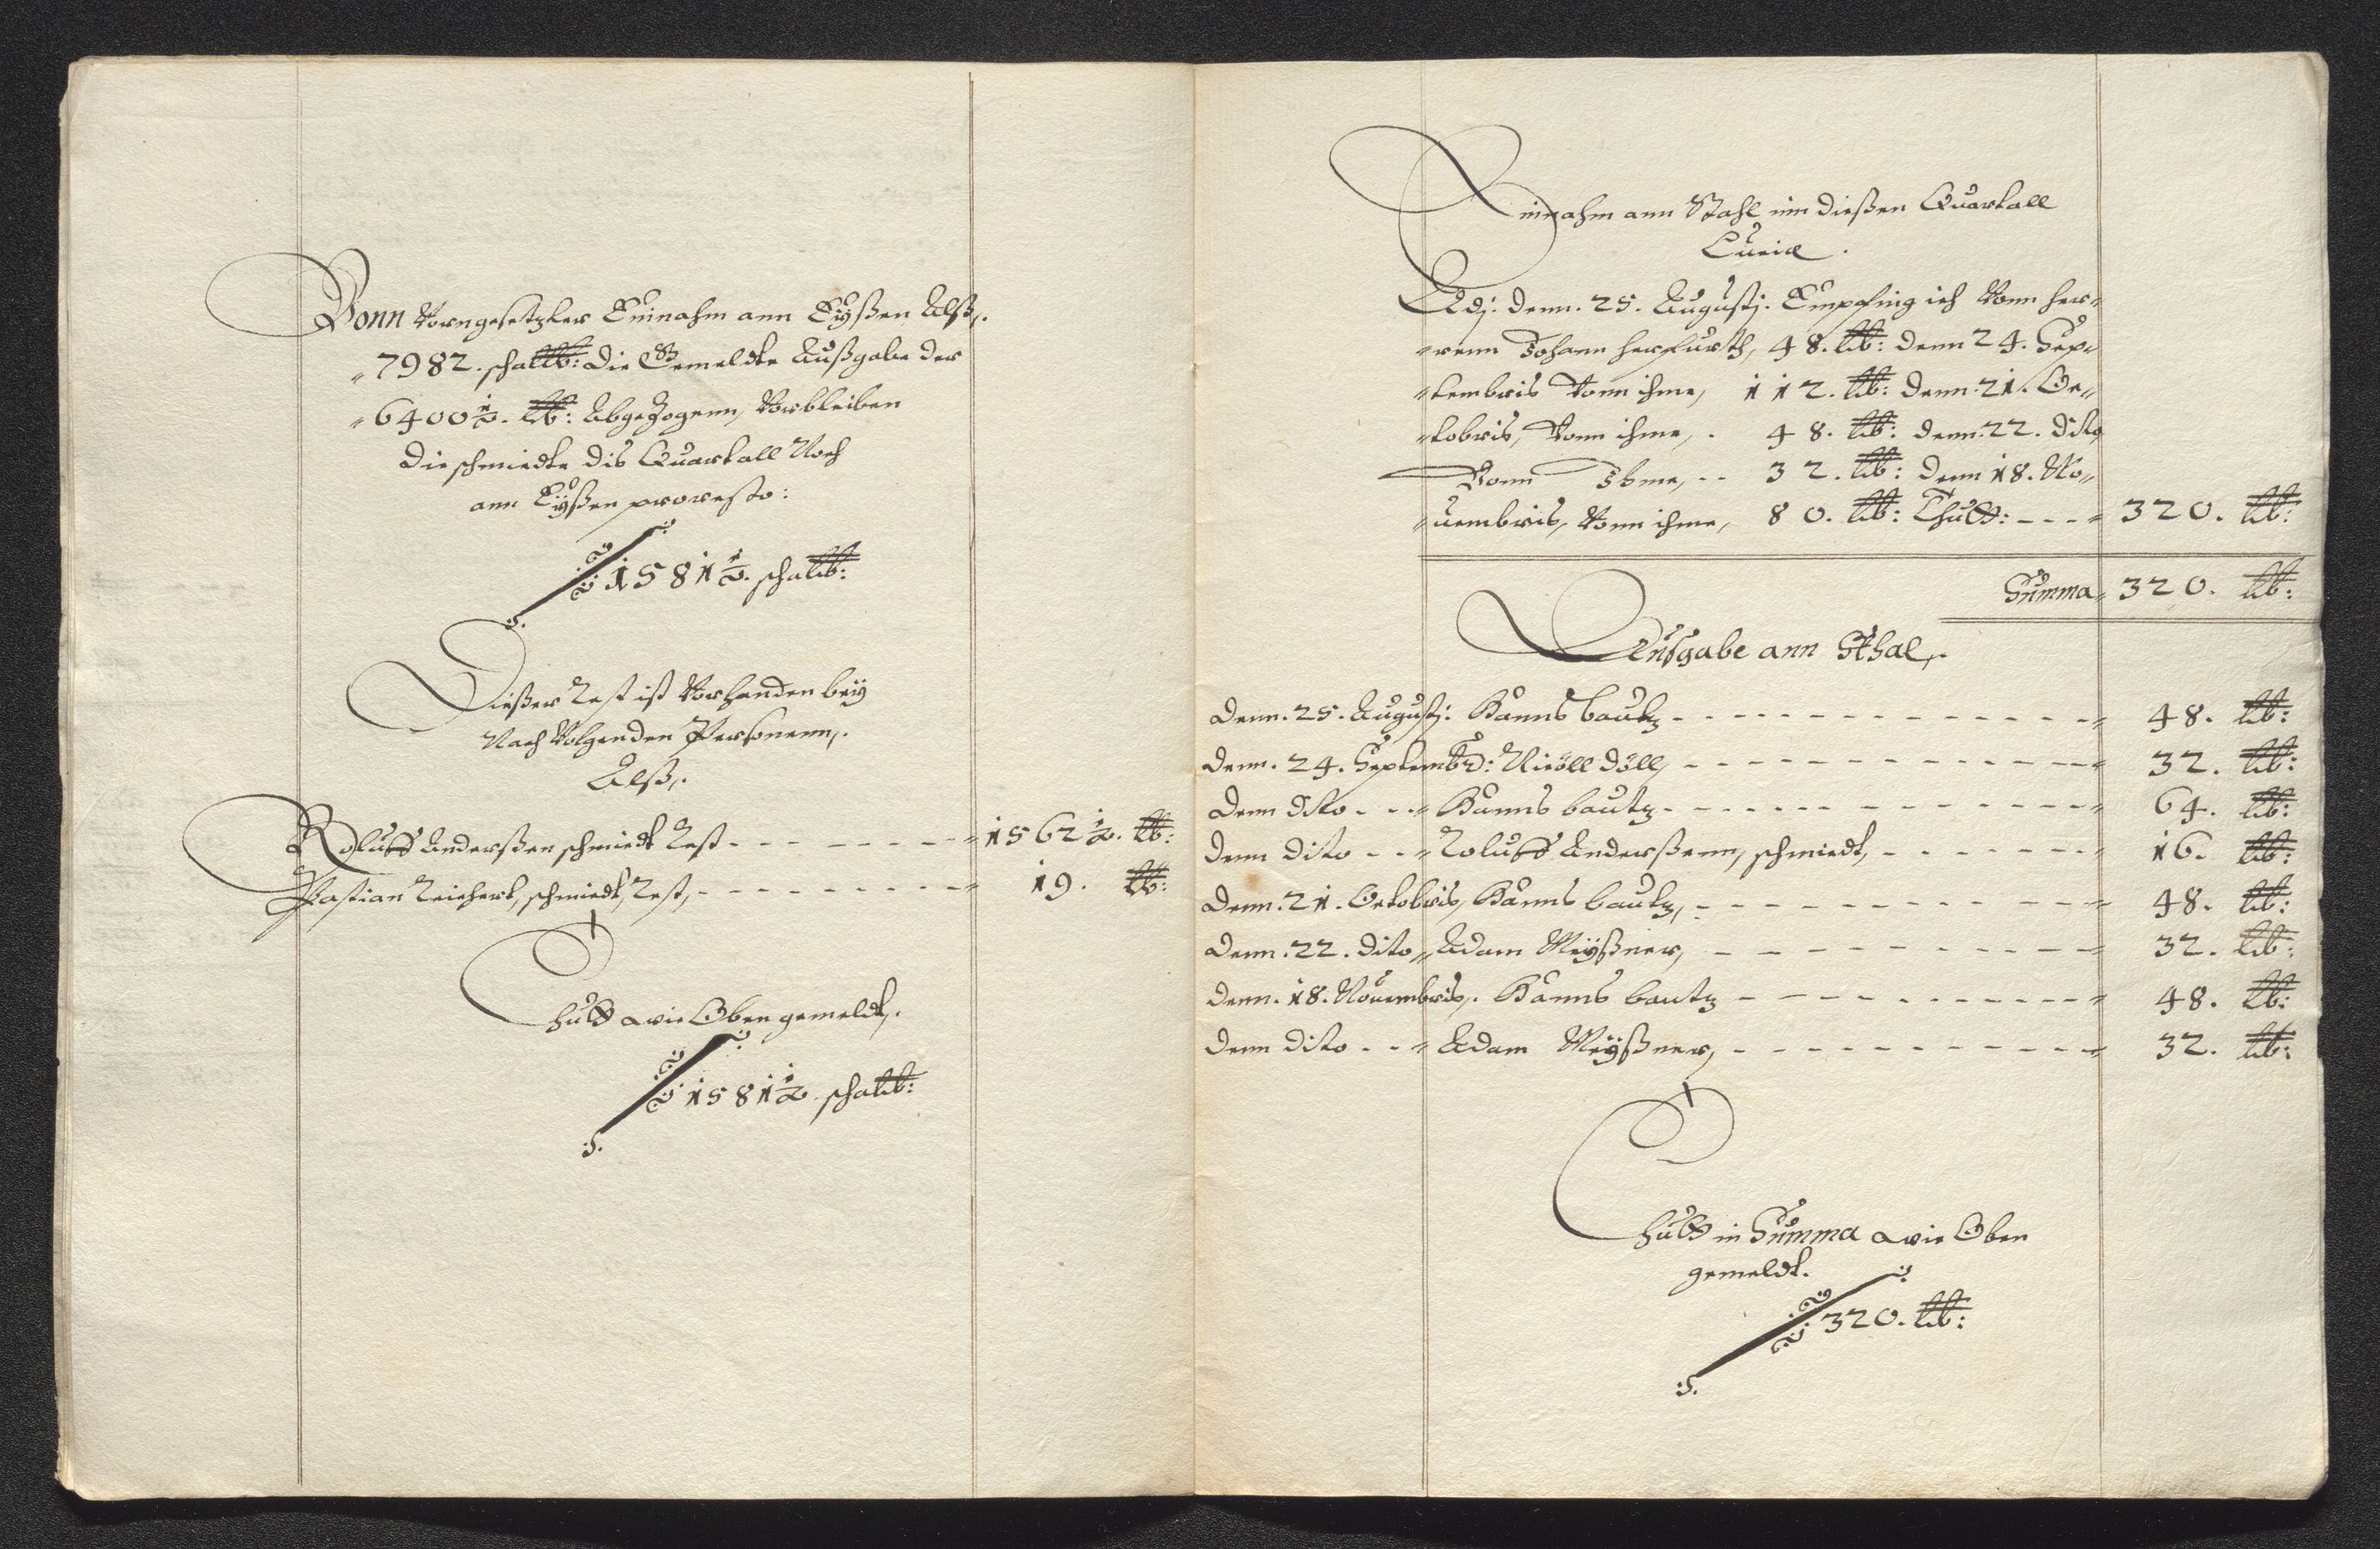 Vonn Vorngesetzter Einnahm ann Eÿßen Alß,.
7982. schallb: die Gemeldte Außgabe der
6400½. lb: Abgezogenn, Verbleiben
die schmiedte dis Quartall Noch
ann Eÿßen proresto:
1581½. schallb:
Dießer Rest ist Vorhanden beÿ
Nach Volgenden Personenn,.
Alß,.
Roluff Anderßen schmiedt Rest - - - - - - 1562½. lb:
Pastian Reichert, schmiedt, Rest, - - - - - - 19. lb:
Thutt wie Oben gemeldt,.
1581½. schallb:
Einnahm ann Stahl inn dießen Quartall
Luciæ.
Adj. denn. 25. Augustj. Empfing ich Vonn her=
=renn Johann herfurth, 48. lb: denn 24. Sep=
=tembris Vonn ihme, 112. lb: denn. 21. Oc=
=tobris, Vonn ihme, . 48. lb: denn. 22. dito
Vonn Ihme, - - 32. lb: denn 18. No=
=uembris, Vonn ihme, 80. lb: Thutt: - - - 320. lb:
Summa 320. lb:
Ausgabe ann Sthal,.
denn. 25. Augustj. Hanns bautz - - - - - - 48. lb:
denn. 24. Septembr: Nicoll döll, - - - - - - 32. lb:
denn dito - - Hanns bautz - - - - - - 64. lb:
denn dito - - Roluff Anderßenn, schmiedt, - - - - - - 16. lb:
denn. 21. Octobris, Hanns bautz, - - - - - - 48. lb:
denn. 22. dito Adam Meÿßner, - - - - - - 32. lb:
denn. 18. Nouembris,. Hanns bautz - - - - - - 48. lb:
denn dito - - Adam Meÿßner, - - - - - - 32. lb:
Thutt in Summa wie Oben
gemeldt.
320. lb: